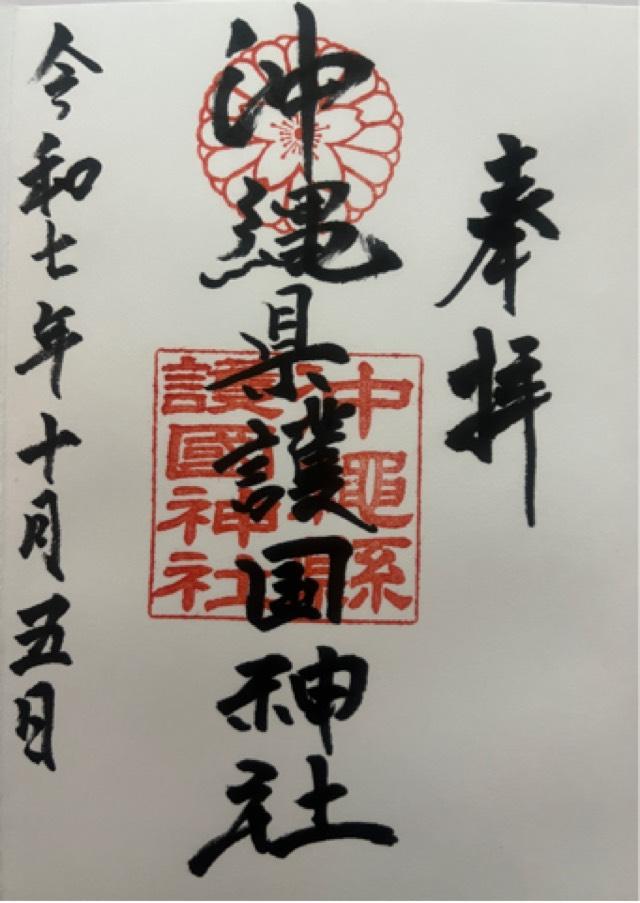 奉拝
沖縄県護国神社
沖縄縣
護國神社
令和七年十月五日